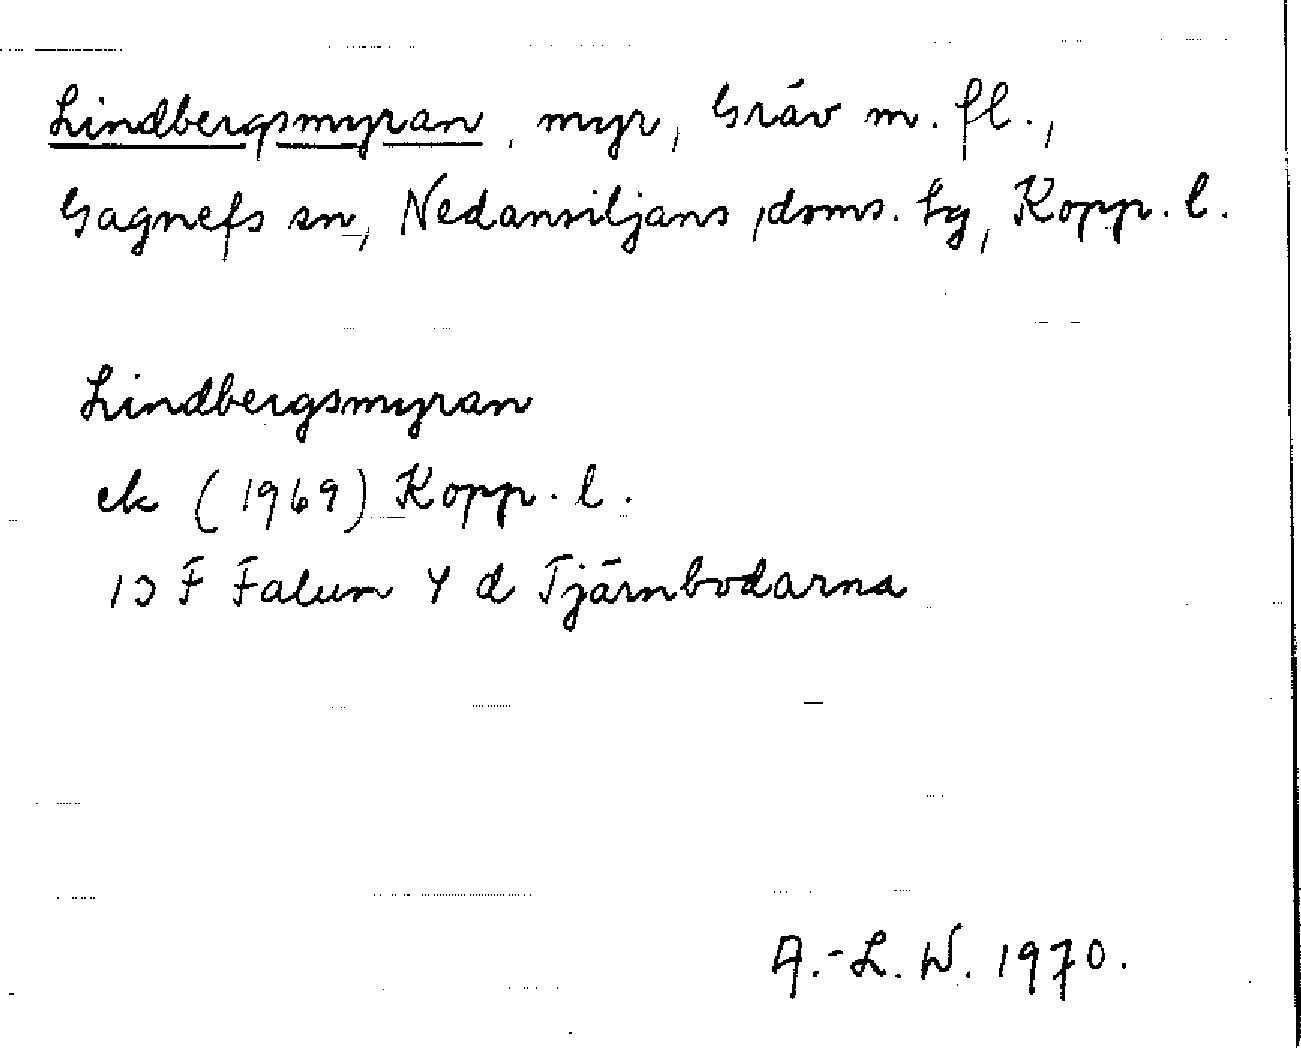 Lindbergsmyran, myr, Gräv m. fl.,
Gagnefs sn, Nedansiljans doms. tg, Kopp. l.
Lindbergsmyran
ek (1969) Kopp. l.
13 F Falun 4 d Tjärnbodarna
A.-L. W. 1970.